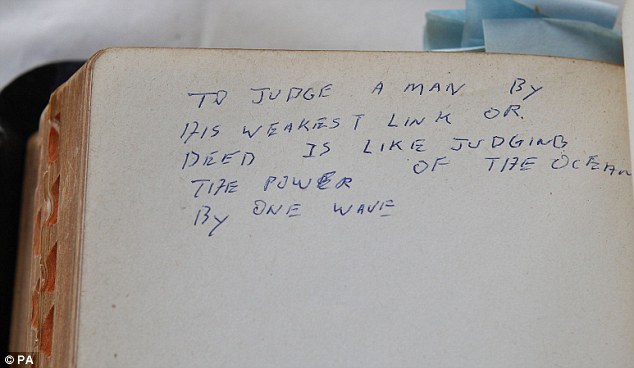 TO JUDGE A MAN BY
HIS WEAKEST LINK OR.
DEED IS LIKE JUDGING
THE POWER OF THE OCEAN
BY ONE WAVE
© PA